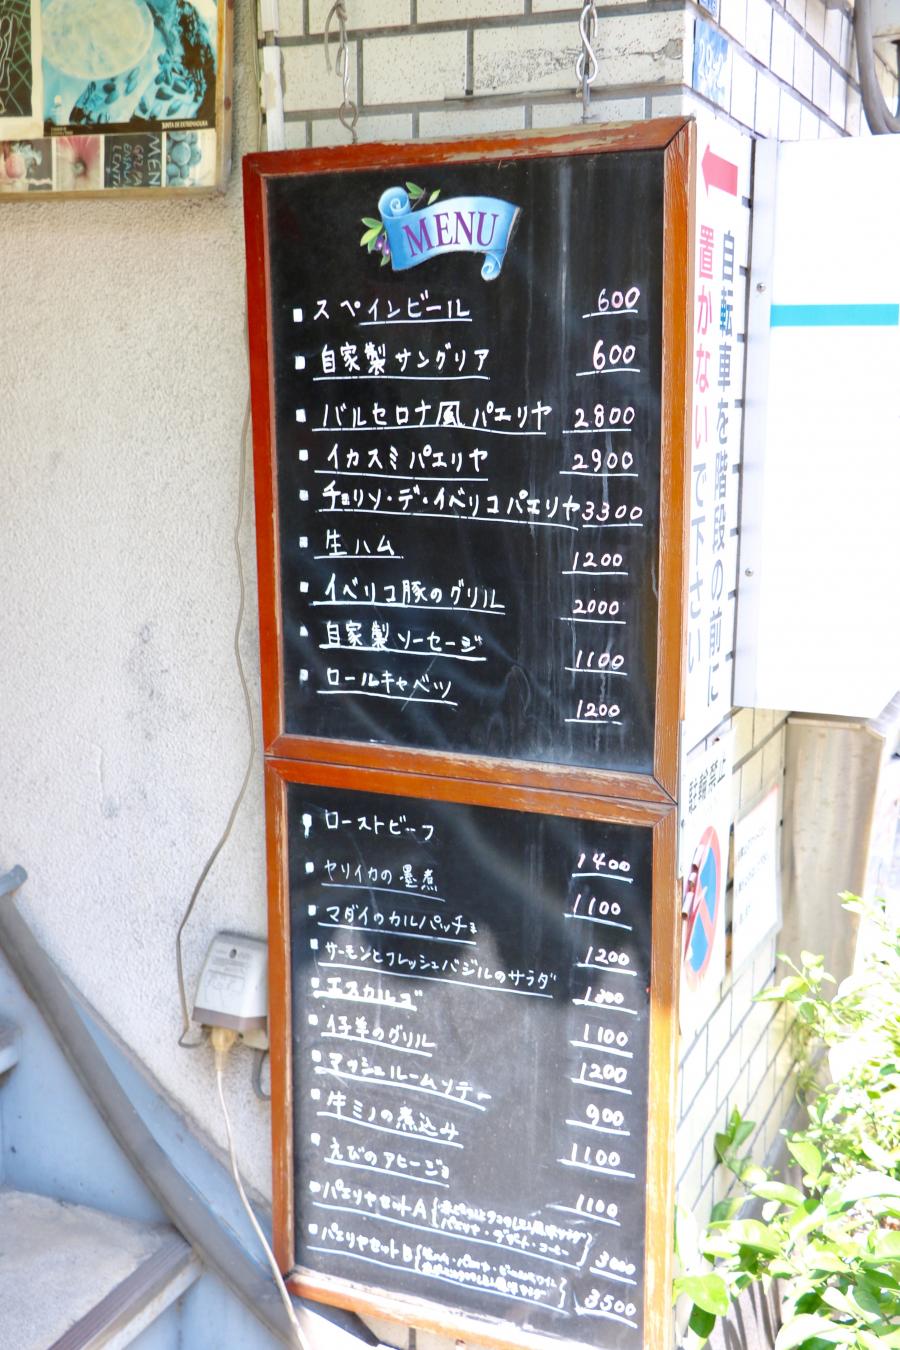 JUNTA DE EXTREMADURA
MENU
スペインビール 600
自家製サングリア 600
バルセロナ風パエリヤ 2800
イカスミパエリヤ 2900
チョリソ・デ・イベリコパエリヤ 3300
生ハム 1200
イベリコ豚のグリル 2000
自家製ソーセージ 1100
ロールキャベツ 1200
ローストビーフ 1400
ヤリイカの墨煮 1100
マダイのカルパッチョ 1200
サーモンとフレッシュバジルのサラダ
エスカルゴ 1100
仔羊のグリル 1200
マッシュルームソテー 900
牛ミノの煮込み 1100
えびのアヒージョ 1100
パエリヤセットA
パエリヤ・デザート・コーヒー
パエリヤセットB 3500
自転車を階段の前に
置かないで下さい
駐輪禁止